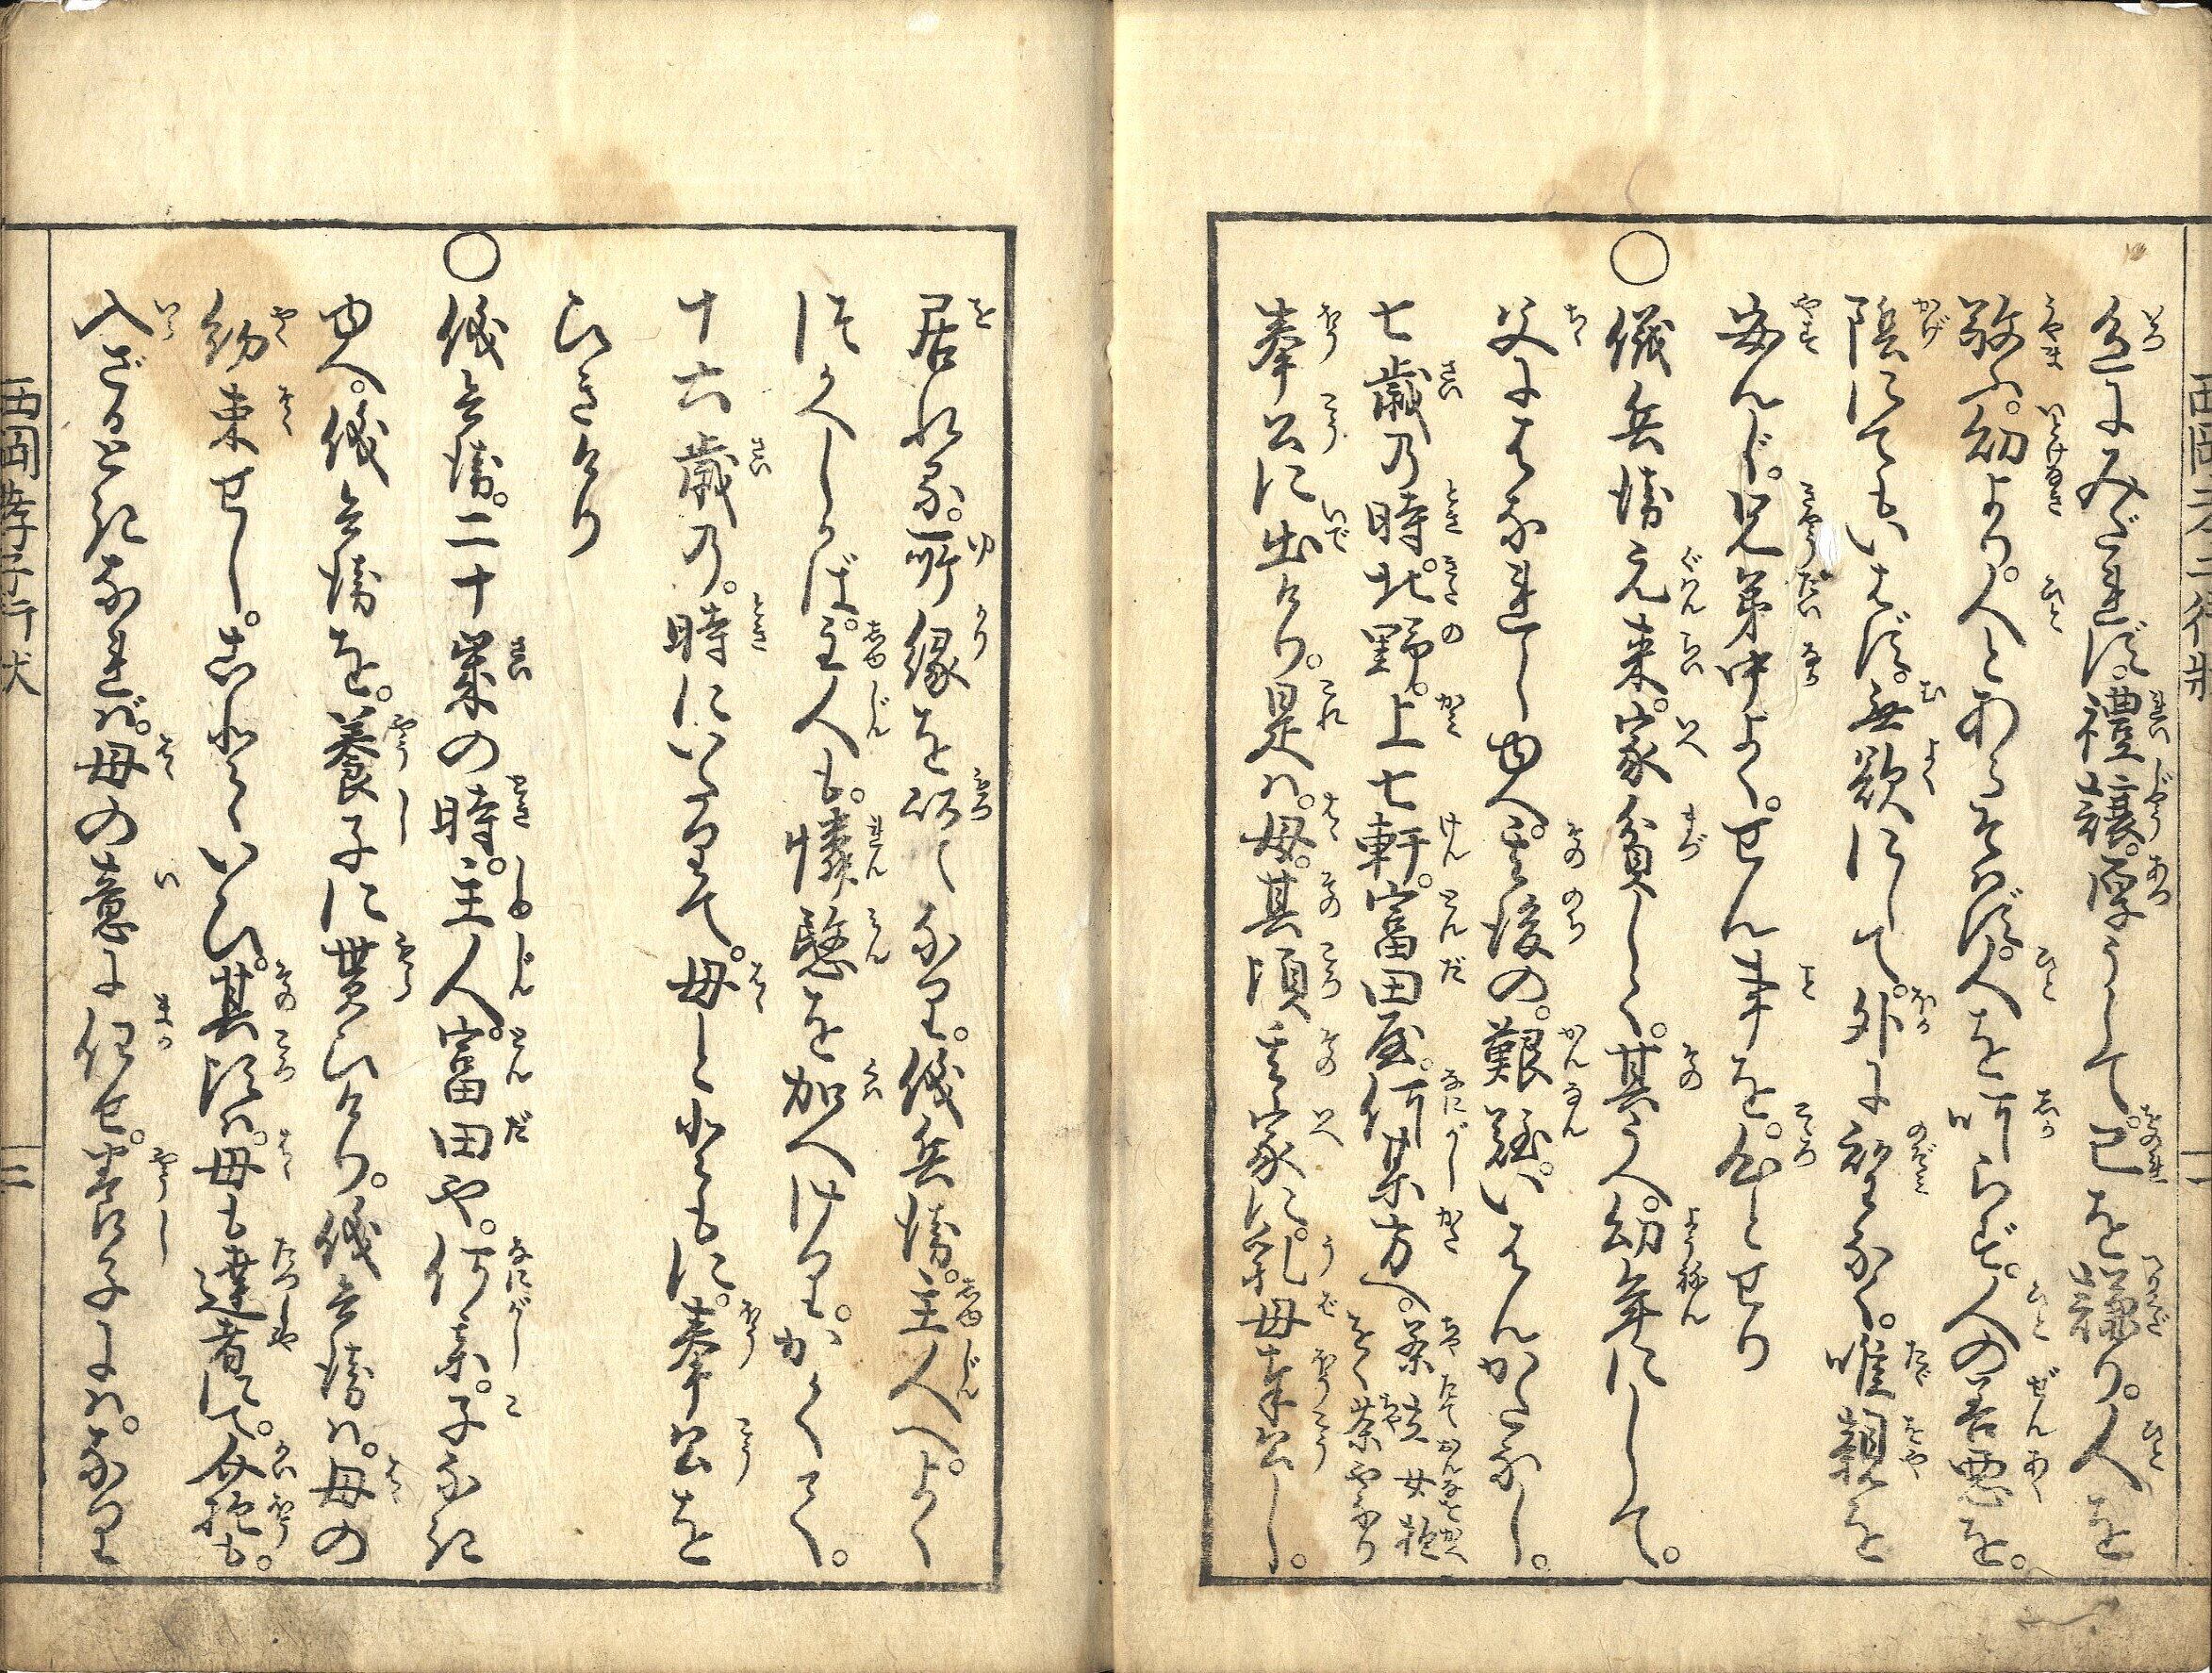 色にみだれず。禮讓。厚うして。己を謙り。人を
敬ふ。幼より。人とあらそはず。人を呵らず。人の善悪を。
陰にてもいはず。無欲にして。外に望なく。唯親を
安んじ。兄弟中よく。せん事を。心とせり
○儀兵衛元来。家貧しく。其うへ。幼年にして。
父にはなれしゆへ。其後の。艱難。いはんかたなし。
七歳の時。北野。上七軒。富田屋。何某方へ。
奉公に出けり。是は。母。其頃其家に。乳母奉公し。
居れる。所縁を以てなり。儀兵衛。主人へ。よく
つかへしかば。主人も。憐愍を加へけり。かくて。
十六歳の。時にいたりて。母とともに。奉公を
ひきけり
○儀兵衛。二十歳の時。主人。富田や。何某。子なき
ゆへ。儀兵衛を。養子に貰ひけり。儀兵衛は。母の
約束せし。ことといひ。其頃は。母も達者にて。介抱も。
入ざるときなれば。母の意に任せ。養子には。なり
西岡孝子行状
二